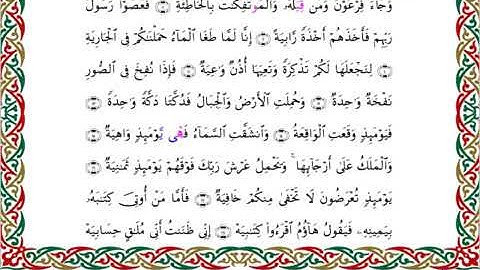 وَجَآءَ فِرْعَوْنُ وَمَن قَبْلَهُۥ وَٱلْمُؤْتَفِكَٰتُ بِٱلْخَاطِئَةِ ۝ فَعَصَوْا۟ رَسُولَ
رَبِّهِمْ فَأَخَذَهُمْ أَخْذَةً رَّابِيَةً ۝ إِنَّا لَمَّا طَغَا ٱلْمَآءُ حَمَلْنَٰكُمْ فِى ٱلْجَارِيَةِ
۝ لِنَجْعَلَهَا لَكُمْ تَذْكِرَةً وَتَعِيَهَآ أُذُنٌ وَٰعِيَةٌ ۝ فَإِذَا نُفِخَ فِى ٱلصُّورِ
نَفْخَةٌ وَٰحِدَةٌ ۝ وَحُمِلَتِ ٱلْأَرْضُ وَٱلْجِبَالُ فَدُكَّتَا دَكَّةً وَٰحِدَةً ۝
فَيَوْمَئِذٍ وَقَعَتِ ٱلْوَاقِعَةُ ۝ وَٱنشَقَّتِ ٱلسَّمَآءُ فَهِىَ يَوْمَئِذٍ وَاهِيَةٌ ۝
وَٱلْمَلَكُ عَلَىٰٓ أَرْجَآئِهَا ۚ وَيَحْمِلُ عَرْشَ رَبِّكَ فَوْقَهُمْ يَوْمَئِذٍ ثَمَٰنِيَةٌ ۝
يَوْمَئِذٍ تُعْرَضُونَ لَا تَخْفَىٰ مِنكُمْ خَافِيَةٌ ۝ فَأَمَّا مَنْ أُوتِىَ كِتَٰبَهُۥ
بِيَمِينِهِۦ فَيَقُولُ هَآؤُمُ ٱقْرَءُوا۟ كِتَٰبِيَهْ ۝ إِنِّى ظَنَنتُ أَنِّى مُلَٰقٍ حِسَابِيَهْ